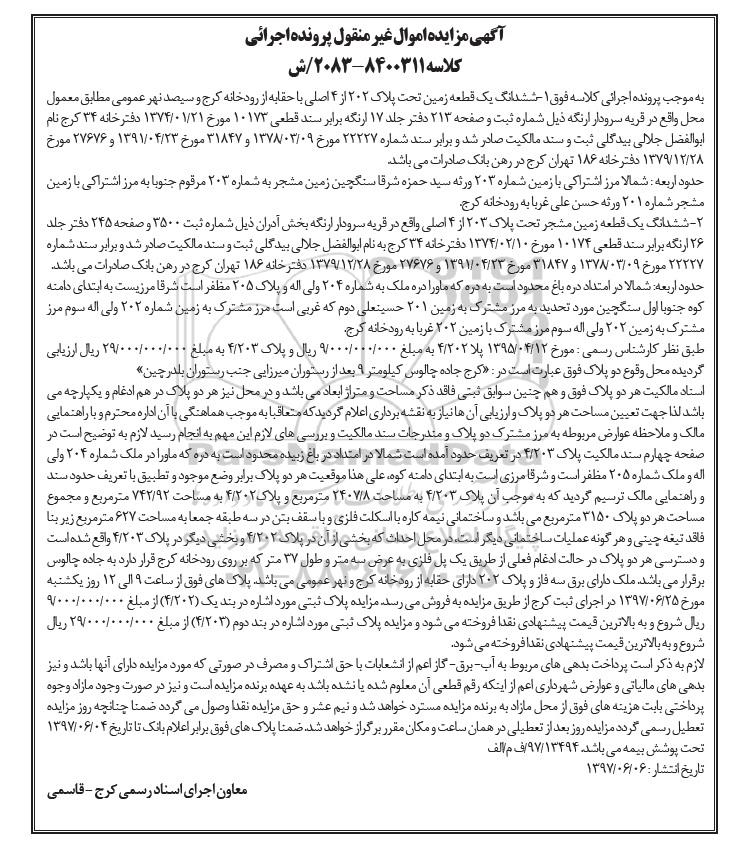 آگهی مزایده اموال غیر منقول پرونده اجرائی
کلاسه ۸۴۰۰۳۱۱-۲۰۸۳/ش
به موجب پرونده اجرائی کلاسه فوق ۱-ششدانگ یک قطعه زمین تحت پلاک ۲۰۲ از ۴ اصلی با حقابه از رودخانه کرج و سیصد نهر عمومی مطابق معمول
محل واقع در قریه سرودار ارنگه ذیل شماره ثبت و صفحه ۲۱۳ دفتر جلد ۱۷ ارنگه برابر سند قطعی ۱۰۱۷۳ مورخ ۱۳۷۴/۰۱/۲۱ دفترخانه ۳۴ کرج نام
ابوالفضل جلالی بیدگلی ثبت و سند مالکیت صادر شد و برابر سند شماره ۲۲۲۲۷ مورخ ۱۳۷۸/۰۳/۰۹ و ۳۱۸۴۷ مورخ ۱۳۹۱/۰۴/۲۳ و ۲۷۶۷۶ مورخ
۱۳۷۹/۱۲/۲۸ دفترخانه ۱۸۶ تهران کرج در رهن بانک صادرات می باشد.
حدود اربعه: شمالا مرز اشتراکی با زمین شماره ۲۰۳ ورثه سید حمزه شرقا سنگچین زمین مشجر به شماره ۲۰۳ مرقوم جنوبا به مرز اشتراکی با زمین
مشجر شماره ۲۰۱ ورثه حسن علی غربا به رودخانه کرج.
۲-ششدانگ یک قطعه زمین مشجر تحت پلاک ۲۰۳ از ۴ اصلی واقع در قریه سرودار ارنگه بخش آدران ذیل شماره ثبت ۳۵۰۰ و صفحه ۲۴۵ دفتر جلد
۲۶ ارنگه برابر سند قطعی ۱۰۱۷۴ مورخ ۱۳۷۴/۰۲/۱۰ دفترخانه ۳۴ کرج به نام ابوالفضل جلالی بیدگلی ثبت و سند مالکیت صادر شد و برابر سند شماره
۲۲۲۲۷ مورخ ۱۳۷۸/۰۳/۰۹ و ۳۱۸۴۷ مورخ ۱۳۹۱/۰۴/۲۳ و ۲۷۶۷۶ مورخ ۱۳۷۹/۱۲/۲۸ دفترخانه ۱۸۶ تهران کرج در رهن بانک صادرات می باشد.
حدود اربعه: شمالا در امتداد دره باغ محدود است به دره که ماورا دره ملک به شماره ۲۰۴ ولی اله و پلاک ۲۰۵ مظفر است شرقا مرزیست به ابتدای دامنه
کوه جنوبا اول سنگچین مورد تحدید به مرز مشترک به زمین ۲۰۱ حسینعلی دوم که غربی است مرز مشترک به زمین شماره ۲۰۲ ولی اله سوم مرز
مشترک به زمین ۲۰۲ ولی اله سوم مرز مشترک با زمین ۲۰۲ غربا به رودخانه کرج.
طبق نظر کارشناس رسمی : مورخ ۱۳۹۵/۰۴/۱۲ پلا ۴/۲۰۲ به مبلغ ۹/۰۰۰/۰۰۰/۰۰۰ ریال و پلاک ۴/۲۰۳ به مبلغ ۲۹/۰۰۰/۰۰۰/۰۰۰ ریال ارزیابی
گردیده محل وقوع دو پلاک فوق عبارت است در : «کرج جاده چالوس کیلومتر ۹ بعد از رستوران میرزایی جنب رستوران بلدرچین»
اسناد مالکیت هر دو پلاک فوق و هم چنین سوابق ثبتی فاقد ذکر مساحت و متراژ ابعاد می باشد و در محل نیز هر دو پلاک در هم ادغام و یکپارچه می
باشد لذا جهت تعیین مساحت هر دو پلاک و ارزیابی آن ها نیاز به نقشه برداری اعلام گردید که متعاقبا به موجب هماهنگی با آن اداره محترم و با راهنمایی
مالک و ملاحظه عوارض مربوطه به مرز مشترک دو پلاک و مندرجات سند مالکیت و بررسی های لازم این مهم به انجام رسید لازم به توضیح است در
صفحه چهارم سند مالکیت پلاک ۴/۲۰۳ در تعریف حدود آمده است شمالا در امتداد در باغ زبیده محدود است به دره که ماورا در ملک شماره ۲۰۴ ولی
اله و ملک شماره ۲۰۵ مظفر است و شرقا مرزی است به ابتدای دامنه کوه، علی هذا موقعیت هر دو پلاک برابر وضع موجود و تطبیق با تعریف حدود سند
و راهنمایی مالک ترسیم گردید که به موجب آن پلاک ۴/۲۰۳ به مساحت ۲۴۰۷/۸ مترمربع و پلاک ۴/۲۰۲ به مساحت ۷۴۲/۹۲ مترمربع و مجموع
مساحت هر دو پلاک ۳۱۵۰ مترمربع می باشد و ساختمانی نیمه کاره با اسکلت فلزی و با سقف بتن در سه طبقه جمعا به مساحت ۶۲۷ مترمربع زیر بنا
فاقد تیغه چینی و هر گونه عملیات ساختمانی دیگر است، در محل احداث که بخشی از آن در پلاک ۴/۲۰۲ و بخشی دیگر در پلاک ۴/۲۰۳ واقع شده است
و دسترسی هر دو پلاک در حالت ادغام فعلی از طریق یک پل فلزی به عرض سه متر و طول ۳۷ متر که بر روی رودخانه کرج قرار دارد به جاده چالوس
برقرار می باشد. ملک دارای برق سه فاز و پلاک ۲۰۲ دارای حقابه از رودخانه کرج و نهر عمومی می باشد. پلاک های فوق از ساعت ۹ الی ۱۲ روز یکشنبه
مورخ ۱۳۹۷/۰۶/۲۵ در اجرای ثبت کرج از طریق مزایده به فروش می رسد. مزایده پلاک ثبتی مورد اشاره در بند یک (۴/۲۰۲) از مبلغ ۹/۰۰۰/۰۰۰/۰۰۰
ریال شروع و به بالاترین قیمت پیشنهادی نقدا فروخته می شود و مزایده پلاک ثبتی مورد اشاره در بند دوم (۴/۲۰۳) از مبلغ ۲۹/۰۰۰/۰۰۰/۰۰۰ ریال
شروع و به بالاترین قیمت پیشنهادی نقدا فروخته می شود.
لازم به ذکر است پرداخت بدهی های مربوط به آب- برق- گاز اعم از انشعابات با حق اشتراک و مصرف در صورتی که مورد مزایده دارای آنها باشد و نیز
بدهی های مالیاتی و عوارض شهرداری اعم از اینکه رقم قطعی آن معلوم شده یا نشده باشد به عهده برنده مزایده است و نیز در صورت وجود مازاد وجوه
پرداختی بابت هزینه های فوق از محل مازاد به برنده مزایده مسترد خواهد شد و نیم عشر و حق مزایده نقدا وصول می گردد ضمنا چنانچه روز مزایده
تعطیل رسمی گردد مزایده روز بعد از تعطیلی در همان ساعت و مکان مقرر برگزار خواهد شد. ضمنا پلاک های فوق برابر اعلام بانک تا تاریخ ۱۳۹۷/۰۶/۰۴
تحت پوشش بیمه می باشد. ۹۷/۱۳۴۹۴/ف م/الف
تاریخ انتشار : ۱۳۹۷/۰۶/۰۶
معاون اجرای اسناد رسمی کرج - قاسمی
ParsNamadData